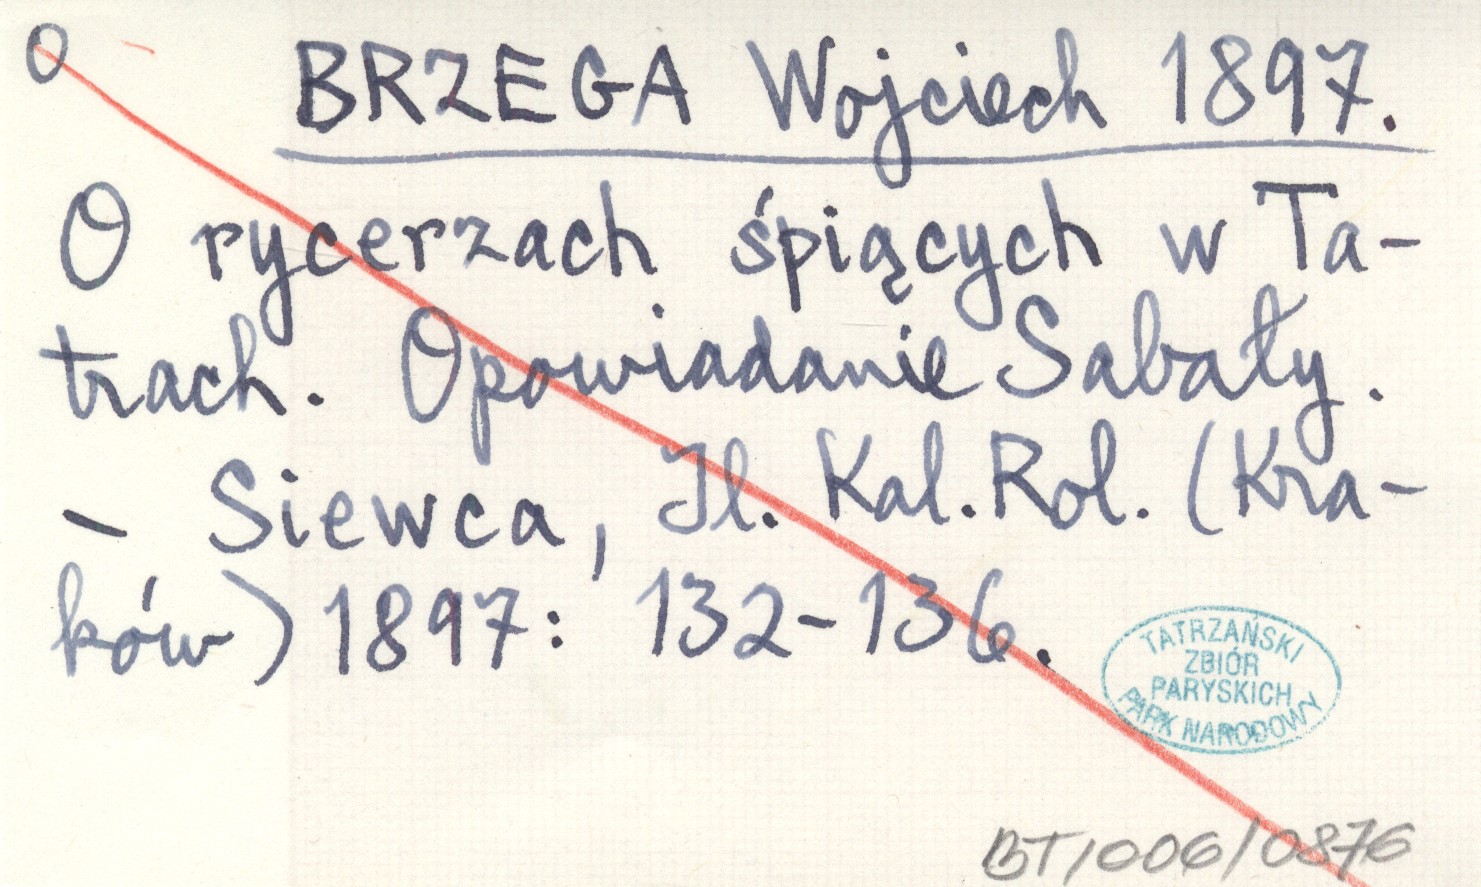 O
BRZEGA Wojciech 1897.
O rycerzach śpiących w Ta-
trach. Opowiadanie Sabały.
- Siewca, Il. Kal. Rol. (Kra-
ków) 1897: 132-136.
TATRZAŃSKI
ZBIÓR
PARYSKICH
PARK NARODOWY
BT/006/0876